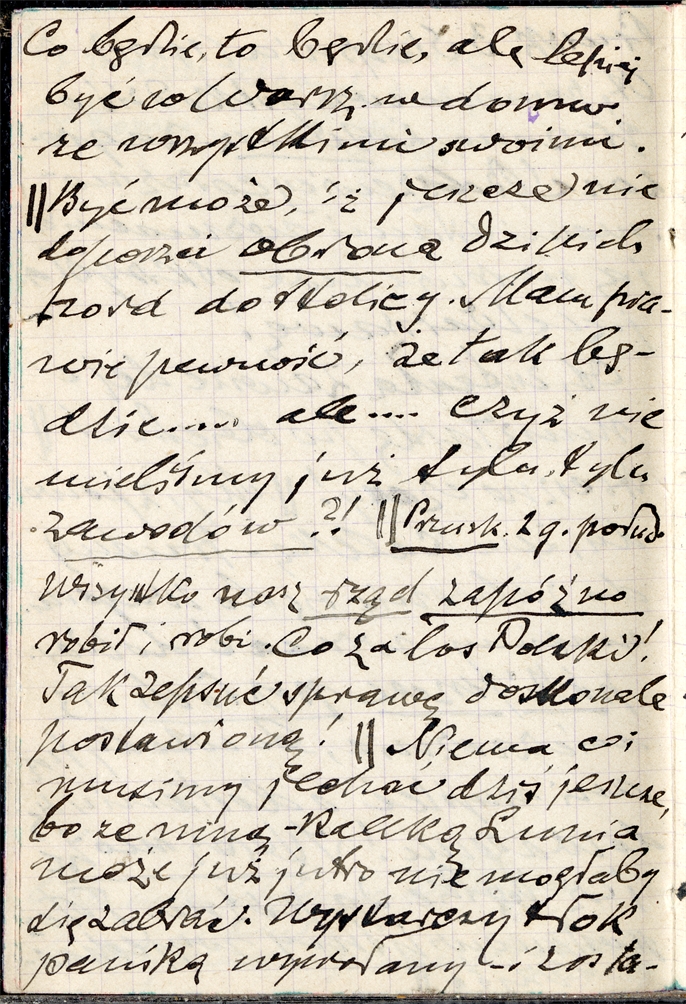 Co będzie, to będzie, ale lepiej
być w Warsz. w domu
ze wszystkimi swoimi.
|| Być może, iż jeszcze nie
dopuści obrona dzikich
hord do stolicy. Mam pra-
wie pewność, że tak bę-
dzie.... ale.... czyż nie
mieliśmy już tylu, tylu
zawodów ?! || Pruszk. 2 g. połud.
Wszystko nasz rząd zapóźno
robił i robi. Co za los Polski!
Tak zepsuć sprawę doskonale
postawioną! || Niema co;
musimy jechać dziś jeszcze,
bo ze mną - kaleką Lunia
może już jutro nie mogłaby
się zabrać. Wystarczy tłok
paniką wywołany - i zosta-